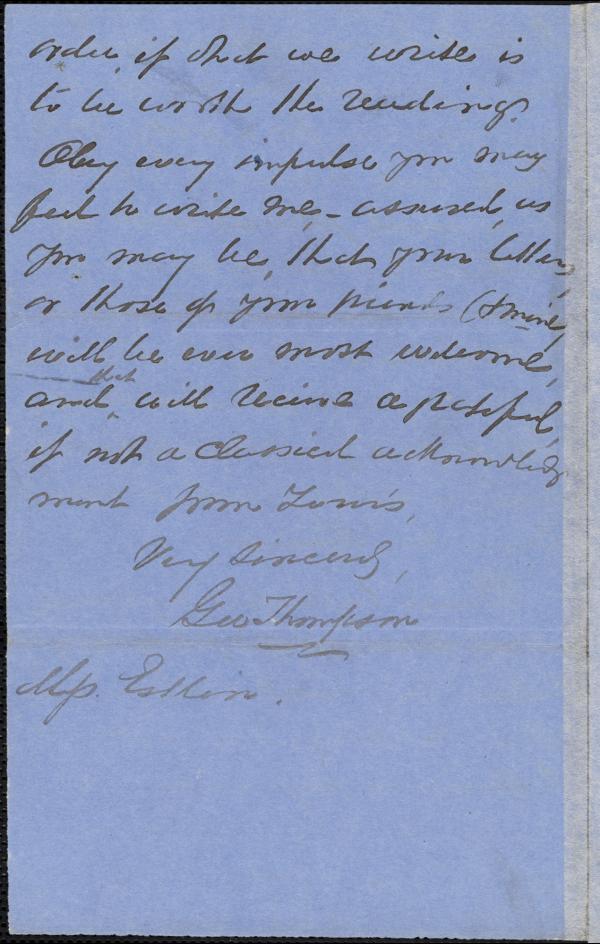 order if what we write is
to be worth the reading.
Obey every impulse you may
feel to write me, - assured, as
you may be, that your letters,
or those of your friends (& mine)
will be ever most welcome,
that
and will receive a grateful,
if not a classical acknowledg
ment from Yours,
Very Sincerely,
Geo Thompson
Miss Estlin.